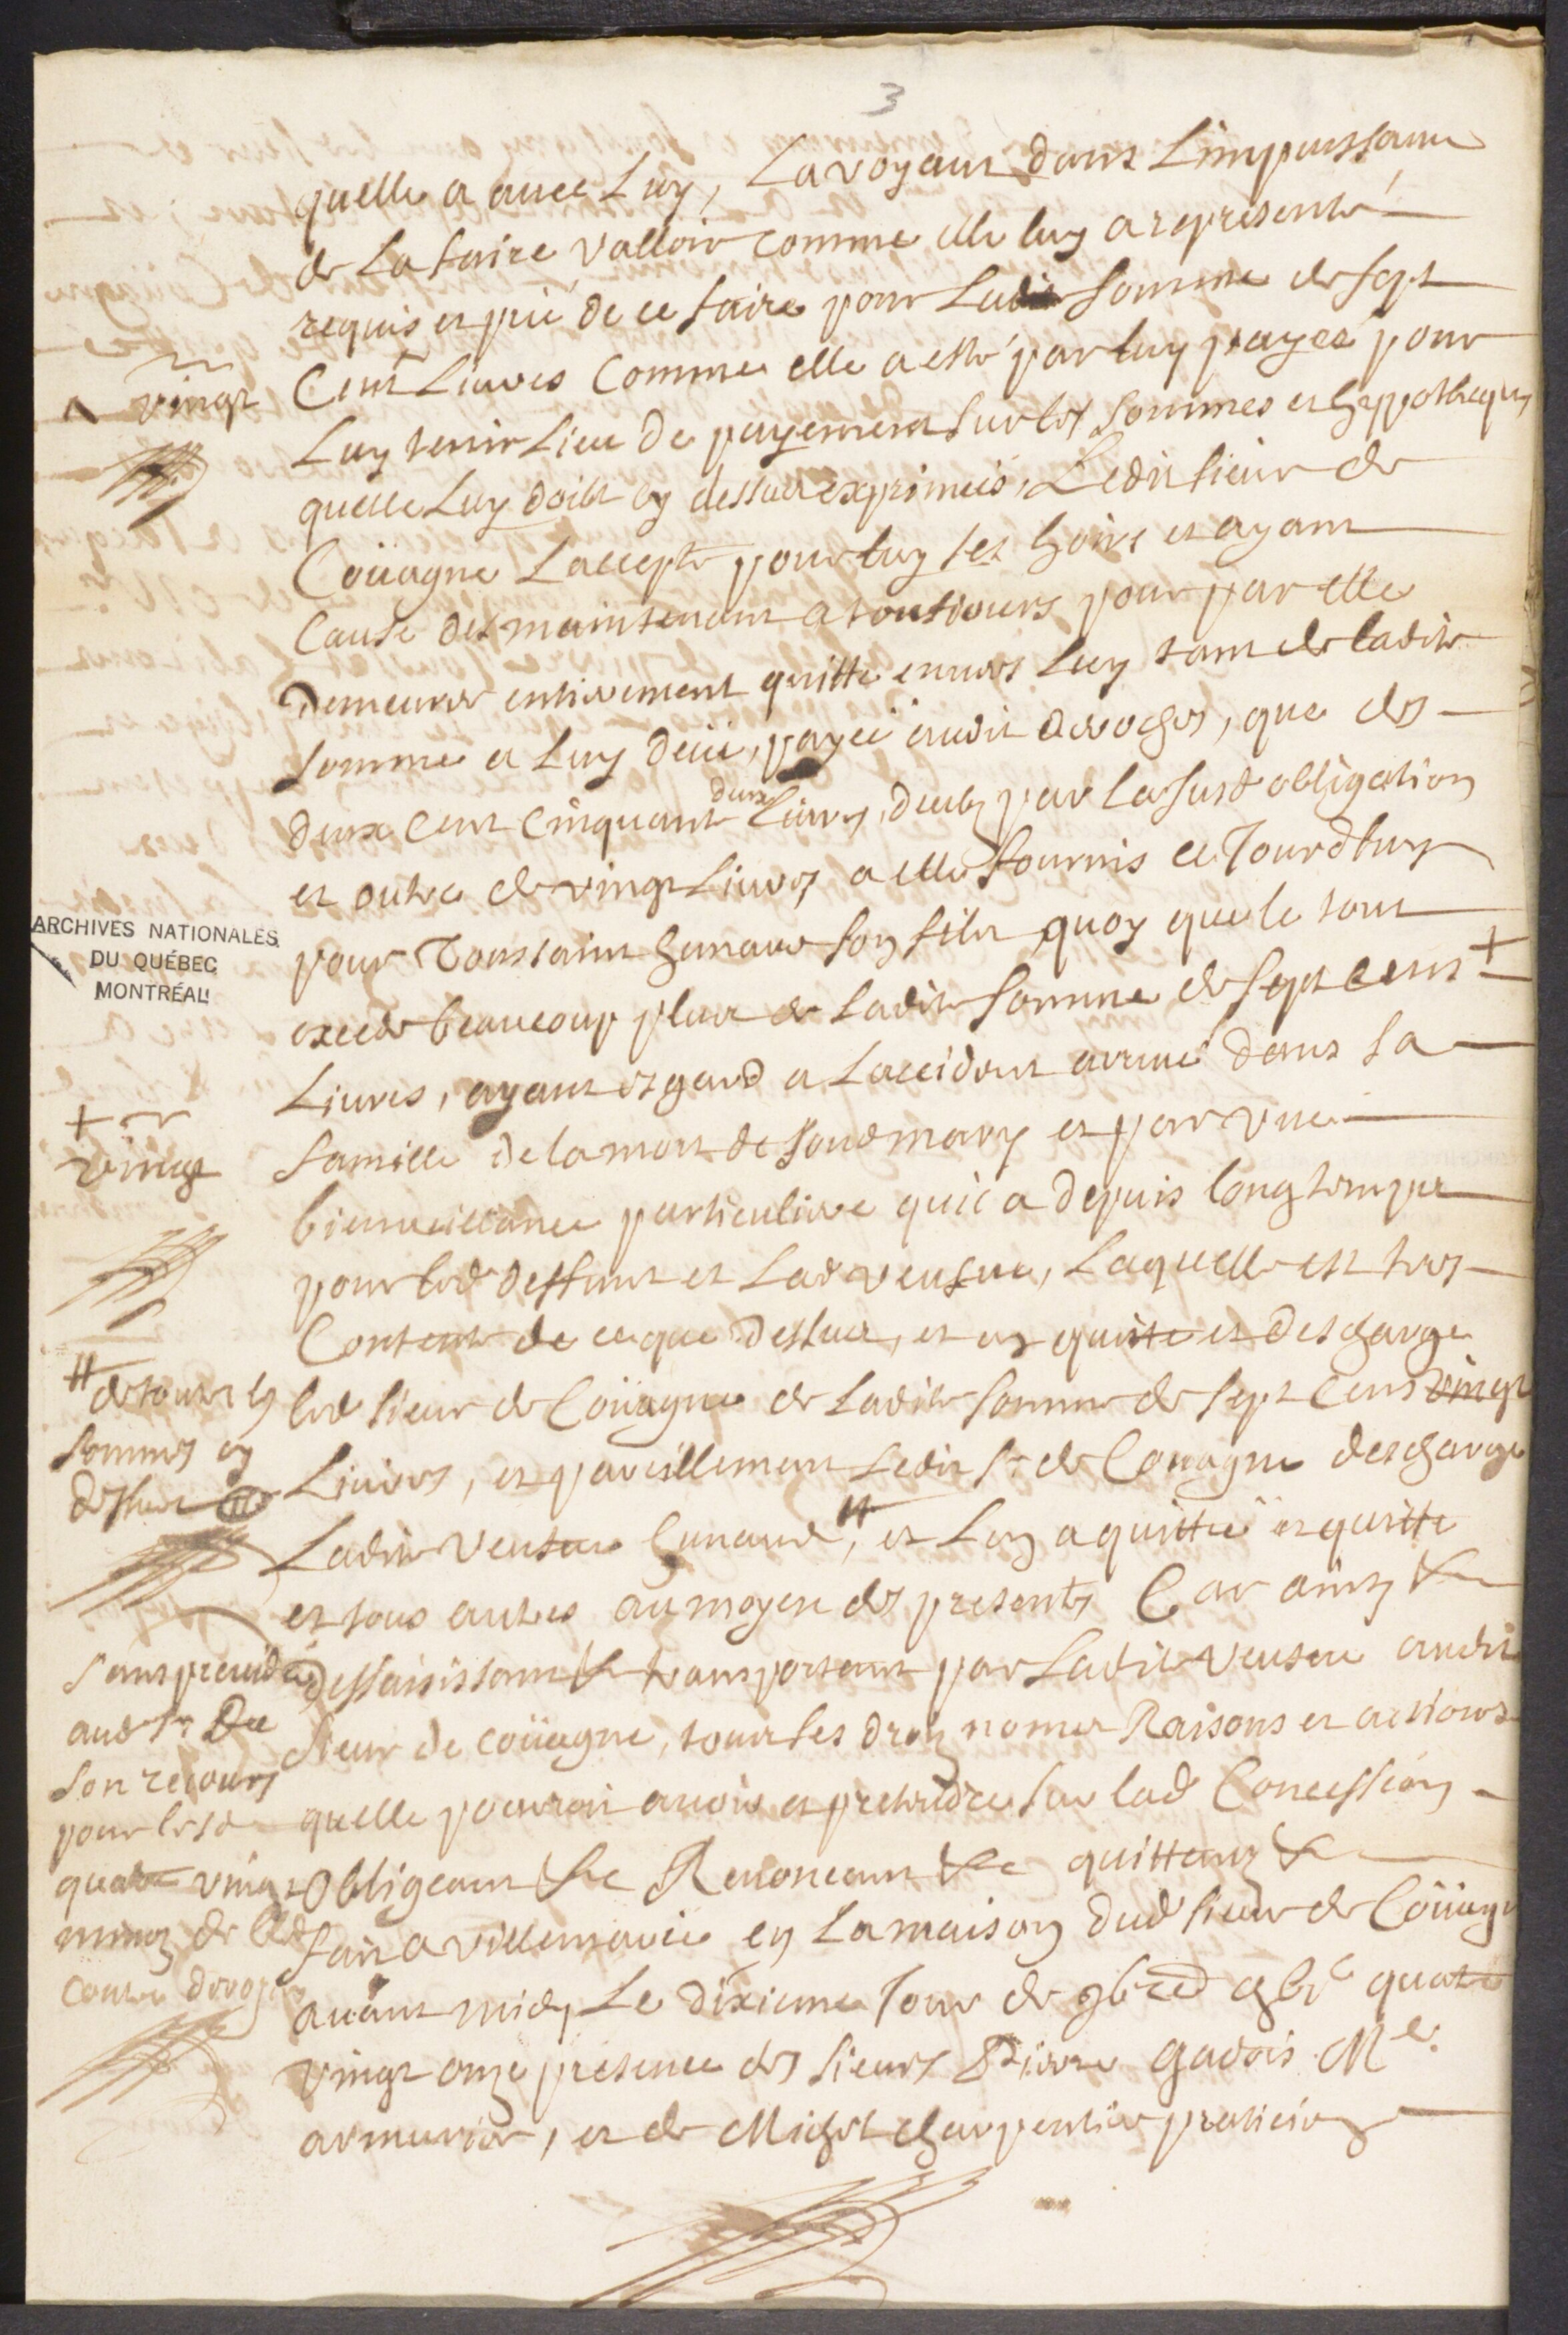 3
quelle a avec Luy, La voyant dans Limpuissance
de La faire valloir comme elle luy a representé
requis et prié de ce faire pour Ladite somme de sept
Cent Livres Comme elle a esté par luy payée pour
^ vingt
Luy tenir Lieu de payement sur les sommes et hyppotheques
quelle Luy doibt cy dessus exprimeés, Ledit sieur de
Coüagne L'accepte pour luy ses hoirs et ayant
Cause des maintenant a tousiours pour par elle
Demeurer entierement quitte envers Luy tant de ladite
somme a Luy deüe, payeé audit , que des
deux Cent Cinquante deux Livres, deubz par La susd obligation
et outre de vingt Livres a elle fournis ce Jourdhuy
pour Toussaint hunaud son fils quoy que le tout
excede beaucoup plus de Ladite somme de sept cent +
Livres, ayant esgard a L'accident arrivé dans sa
+ vingt
famille de la mort de sond mary et par une
bienveillance particuliere qu'il a depuis longtemps
pour led deffunt et Lad veufve, Laquelle est tres
Contente de ce que dessus, et en quitte et descharge
led sieur de Coüagne de Ladite somme de sept Cens vingt
Livres, et pareillement Ledit Sr de Couagne descharge
# de toutes les
sommes cy
dessus
Ladite Veufve hunaud #, et Len a quitteé et quitte
et tous autres au moyen des presentes Car ainsy &c
dessaisissant &c transportant par Ladite Veufve audit
Sieur de coüagne, tous ses droitz noms Raisons et actions
quelle pourroit avoir et pretendre sur lad Concession
sans preiudice
aud Sr De
son recours
pour lesd
quatre vingt
minotz de bled
contre
Obligeant &c Renonceant &c quittant &c
fait a villemarie en La maison dud sieur de Coüagne
avant midy Le dixieme Jour de 9bre gbjc quatre
vingt onze presence des sieurs Pierre gadois Me
armurier, et de Michel charpentier praticien
ARCHIVES NATIONALES
DU QUÉBEC
MONTRÉAL